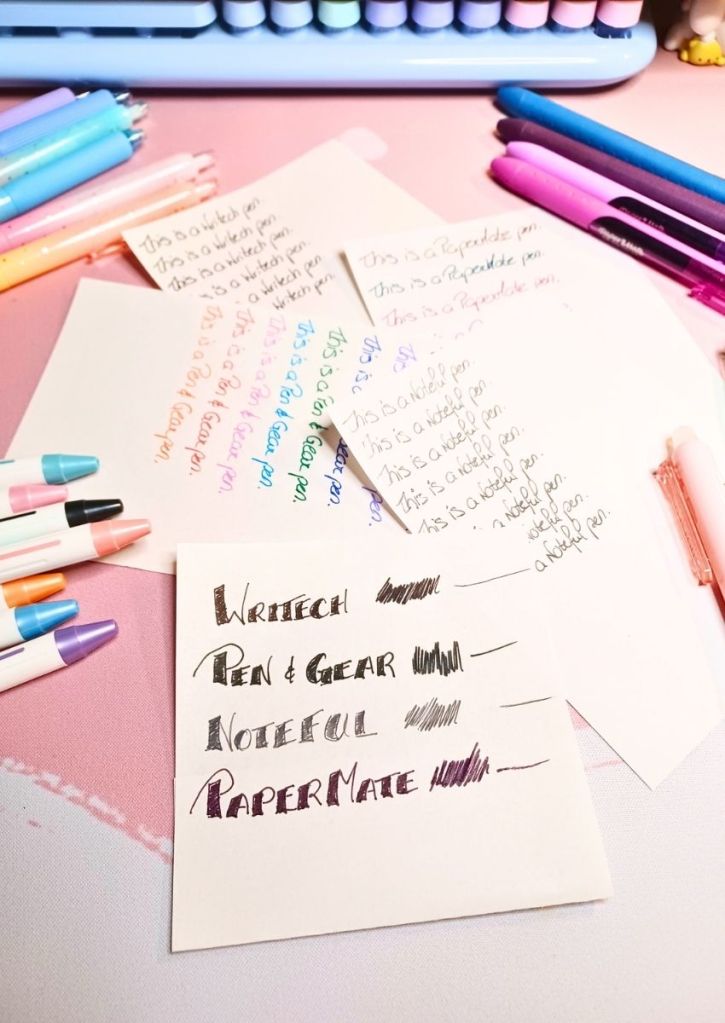 This is a Writech pen.
This is a Writech pen.
This is a Writech pen.
a Writech pen.
Writech pen.
This is a PaperMate pen.
This is a PaperMate pen.
This is a PaperMate pen.
This is a Pen & Gear pen.
This is a Pen & Gear pen.
This is a Pen & Gear pen.
This is a Pen & Gear pen.
This is a Pen & Gear pen.
This is
Gear pen.
This
pen.
This is a Noteful pen.
This is a Noteful pen.
This is a Noteful pen.
This is a Noteful pen.
This is a Noteful pen.
a Noteful pen.
Noteful pen.
a Noteful pen.
WRITECH
PEN & GEAR
NOTEFUL
PAPERMATE